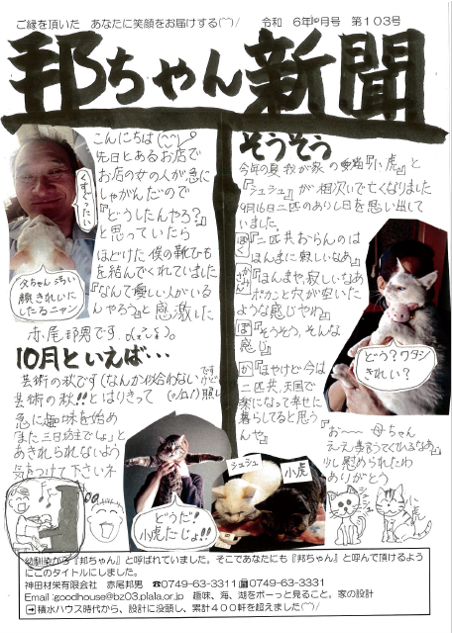 ご縁を頂いた　あなたに笑顔をお届けする(^^)/　令和　6年10月号　第103号
邦ちゃん新聞
こんにちは(^^)
先日とあるお店で
お店の女の人が急に
しゃがんだので
『どうしたんやろ？』
と思っていたら
ほどけた僕の靴ひも
を結んでくれていました
『なんて優しい人がいる
んやろう』と感激した
赤尾邦男です。
くすぐったい
父ちゃん汚い
顔きれいに
したるニャン
10月といえば…
芸術の秋です(なんか似合わないですけど
芸術の秋!!とはりきって
急に趣味を始め
『また三日坊主でしょ』と
あきれられないよう
気をつけて下さいネ
どうだ！
小虎だじょ!!
そうそう
今年の夏我が家の愛猫『小虎』と
『シュシュ』が相次いで亡くなりました
9月16日二匹のありし日を思い出して
いました。
『二匹共おらんのは
ほんまに寂しいなあ』
『ほんまや、寂しいなあ
ポカンと穴が空いた
ような感じやね』
『そうそう、そんな
感じ』
『はやけど今は
二匹共、天国で
楽になって幸せに
暮らしてると思う
んや』
どう？ワタシ
きれい？
『お〜母ちゃん
ええ事言うてくれるなあ』
少し慰められたわ
ありがとう
シュシュ
小虎
シュシュ
小虎
幼馴染から『邦ちゃん』と呼ばれていました。そこであなたにも『邦ちゃん』と呼んで頂けるよう
にこのタイトルにしました。
神田材栄有限会社　赤尾邦男　☎0749-63-3311 0749-63-3331
Email:goodhouse@bz03.plala.or.jp　趣味、海、湖をボーっと見ること。家の設計
積水ハウス時代から、設計に没頭し、累計400軒を超えました(^^)/